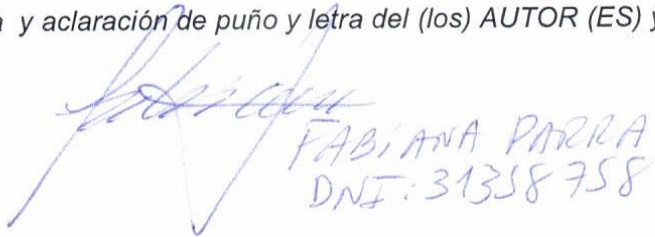 y aclaración de puño y letra del (los) AUTOR (ES) y
FABIANA PARRA
DNI: 31358758